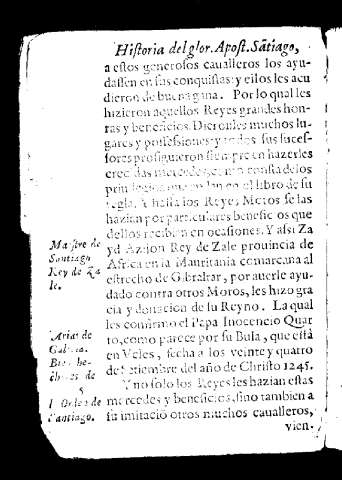 Historia del glor. Apost. Sātiago,
a estos generosos caualleros los ayu-
dassen en sus conquistas: y ellos les acu
dieron de buena gana. Por lo qual les
hizieron aquellos Reyes grandes hon-
ras y beneficios. Dieronles muchos lu-
gares y possessiones: y todos sus suces-
sores prosiguieron siempre en hazerles
crecidas mercedes, como consta de los
priuilegios que estan en el libro de su
regla. Y hasta los Reyes Moros se las
hazian por particulares beneficios que
dellos reciben en ocasiones. Y assi Za
yd Azajon Rey de Zale prouincia de
Africa en la Mauritania comarcana al
estrecho de Gibraltar, por auerle ayu-
dado contra otros Moros, les hizo gra
cia y donacion de su Reyno. La qual
les confirmo el Papa Inocencio Quar
to, como parece por su Bula, que està
en Veles, fecha a los veinte y quatro
de Setiembre del año de Christo 1245.
Y no solo los Reyes les hazian estas
mercedes y beneficios, sino tambien a
su imitacio otros muchos caualleros,
vien-
Maestre de
Santiago
Rey de Za
le.
Arias de
Galicia.
de
Orden de
Santiago.